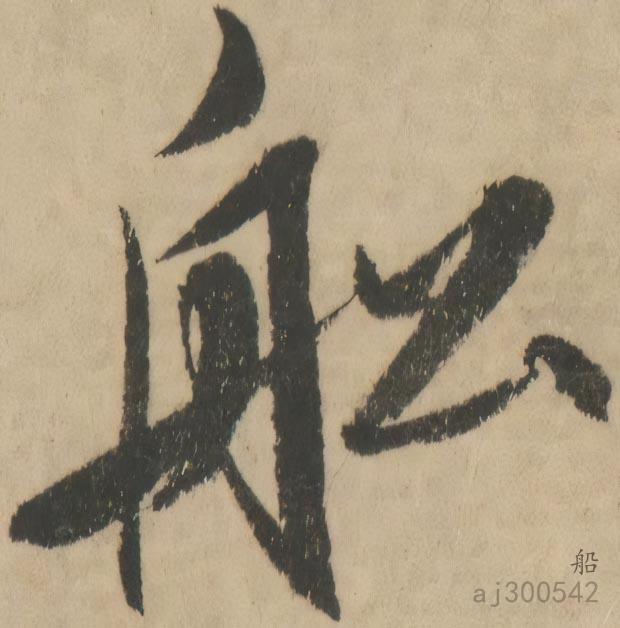 船
船
aj300542